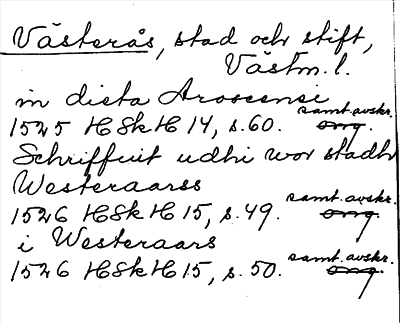 Västerås, stad och stift,
Västm. l.
in dicta Aroscensi
samt. avskr.
1525 HSkH 14, s. 60. orig.
Schriffuit udhi wor stadh
Westeraarss
samt. avskr.
1526 HSkH 15, s. 49. orig.
i Westeraars
samt. avskr.
1526 HSkH 15, s. 50. orig.